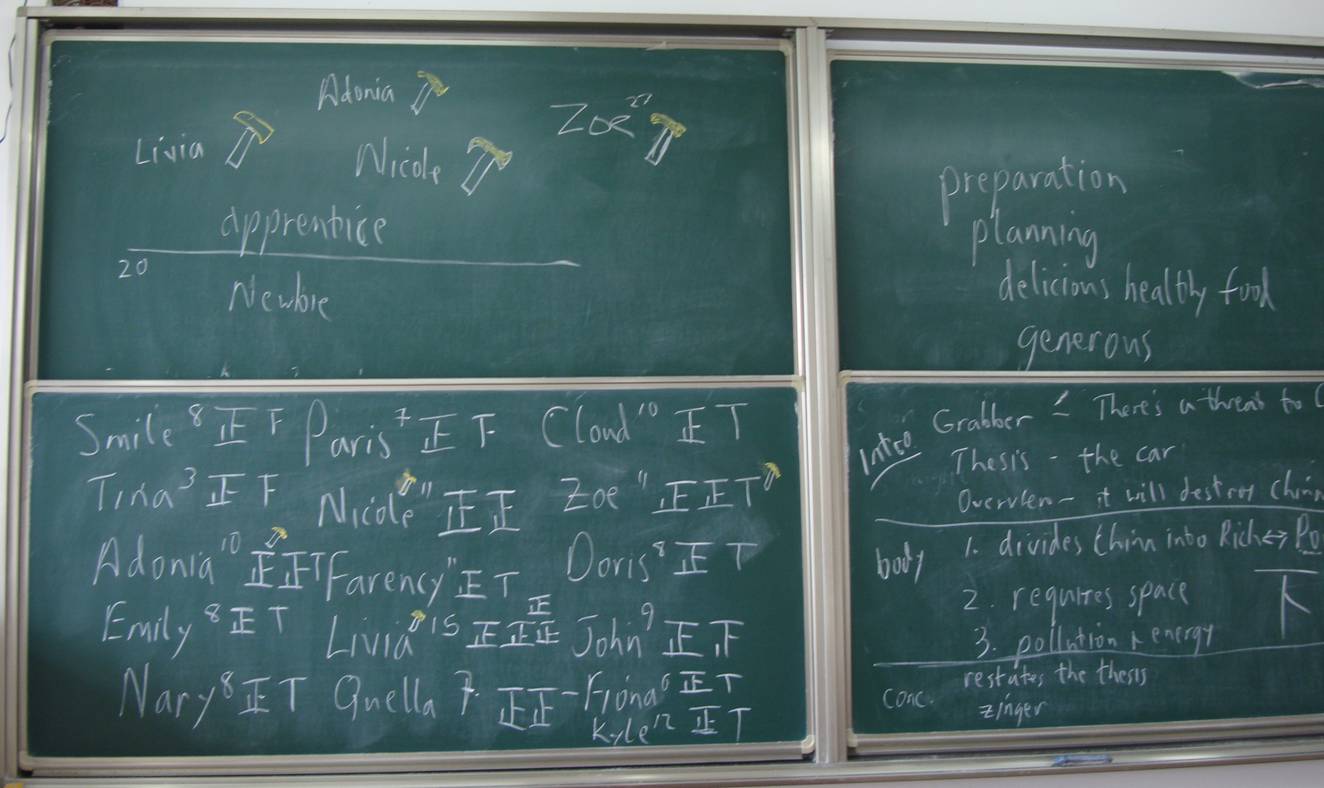 Adonia
Livia
Nicole
Zoe 27
apprentice
20
Newbie
Smile 8 正 F Paris 7 正 F Cloud 10 正 T
Tina 3 正 F Nicole 11 正 正 Zoe 11 正 正 T
Adonia 10 正 正 T Farency 11 正 T Doris 8 正 T
Emily 8 正 T Livia 15 正 正 正 正 John 9 正 F
Nary 8 正 T Qnella 7 正 正 - Fiona 6 正 T
Kyle 12 正 T
preparation
planning
delicious healthy food
generous
Intro Grabber - There's a threat to
Thesis - the car
Overview - it will destroy China
body 1. divides China into Rich ↔ Po
2. requires space
3. pollution & energy
下
conc. restates the thesis
zinger